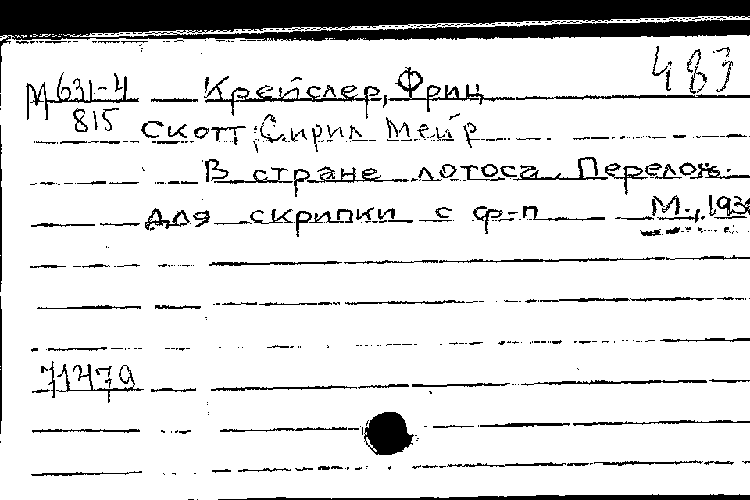 483
М 631-4 Крейслер, Фриц
815 Скотт, Сирил Мейр
В стране лотоса. Перелож.
для скрипки с ф-п М.,
71479